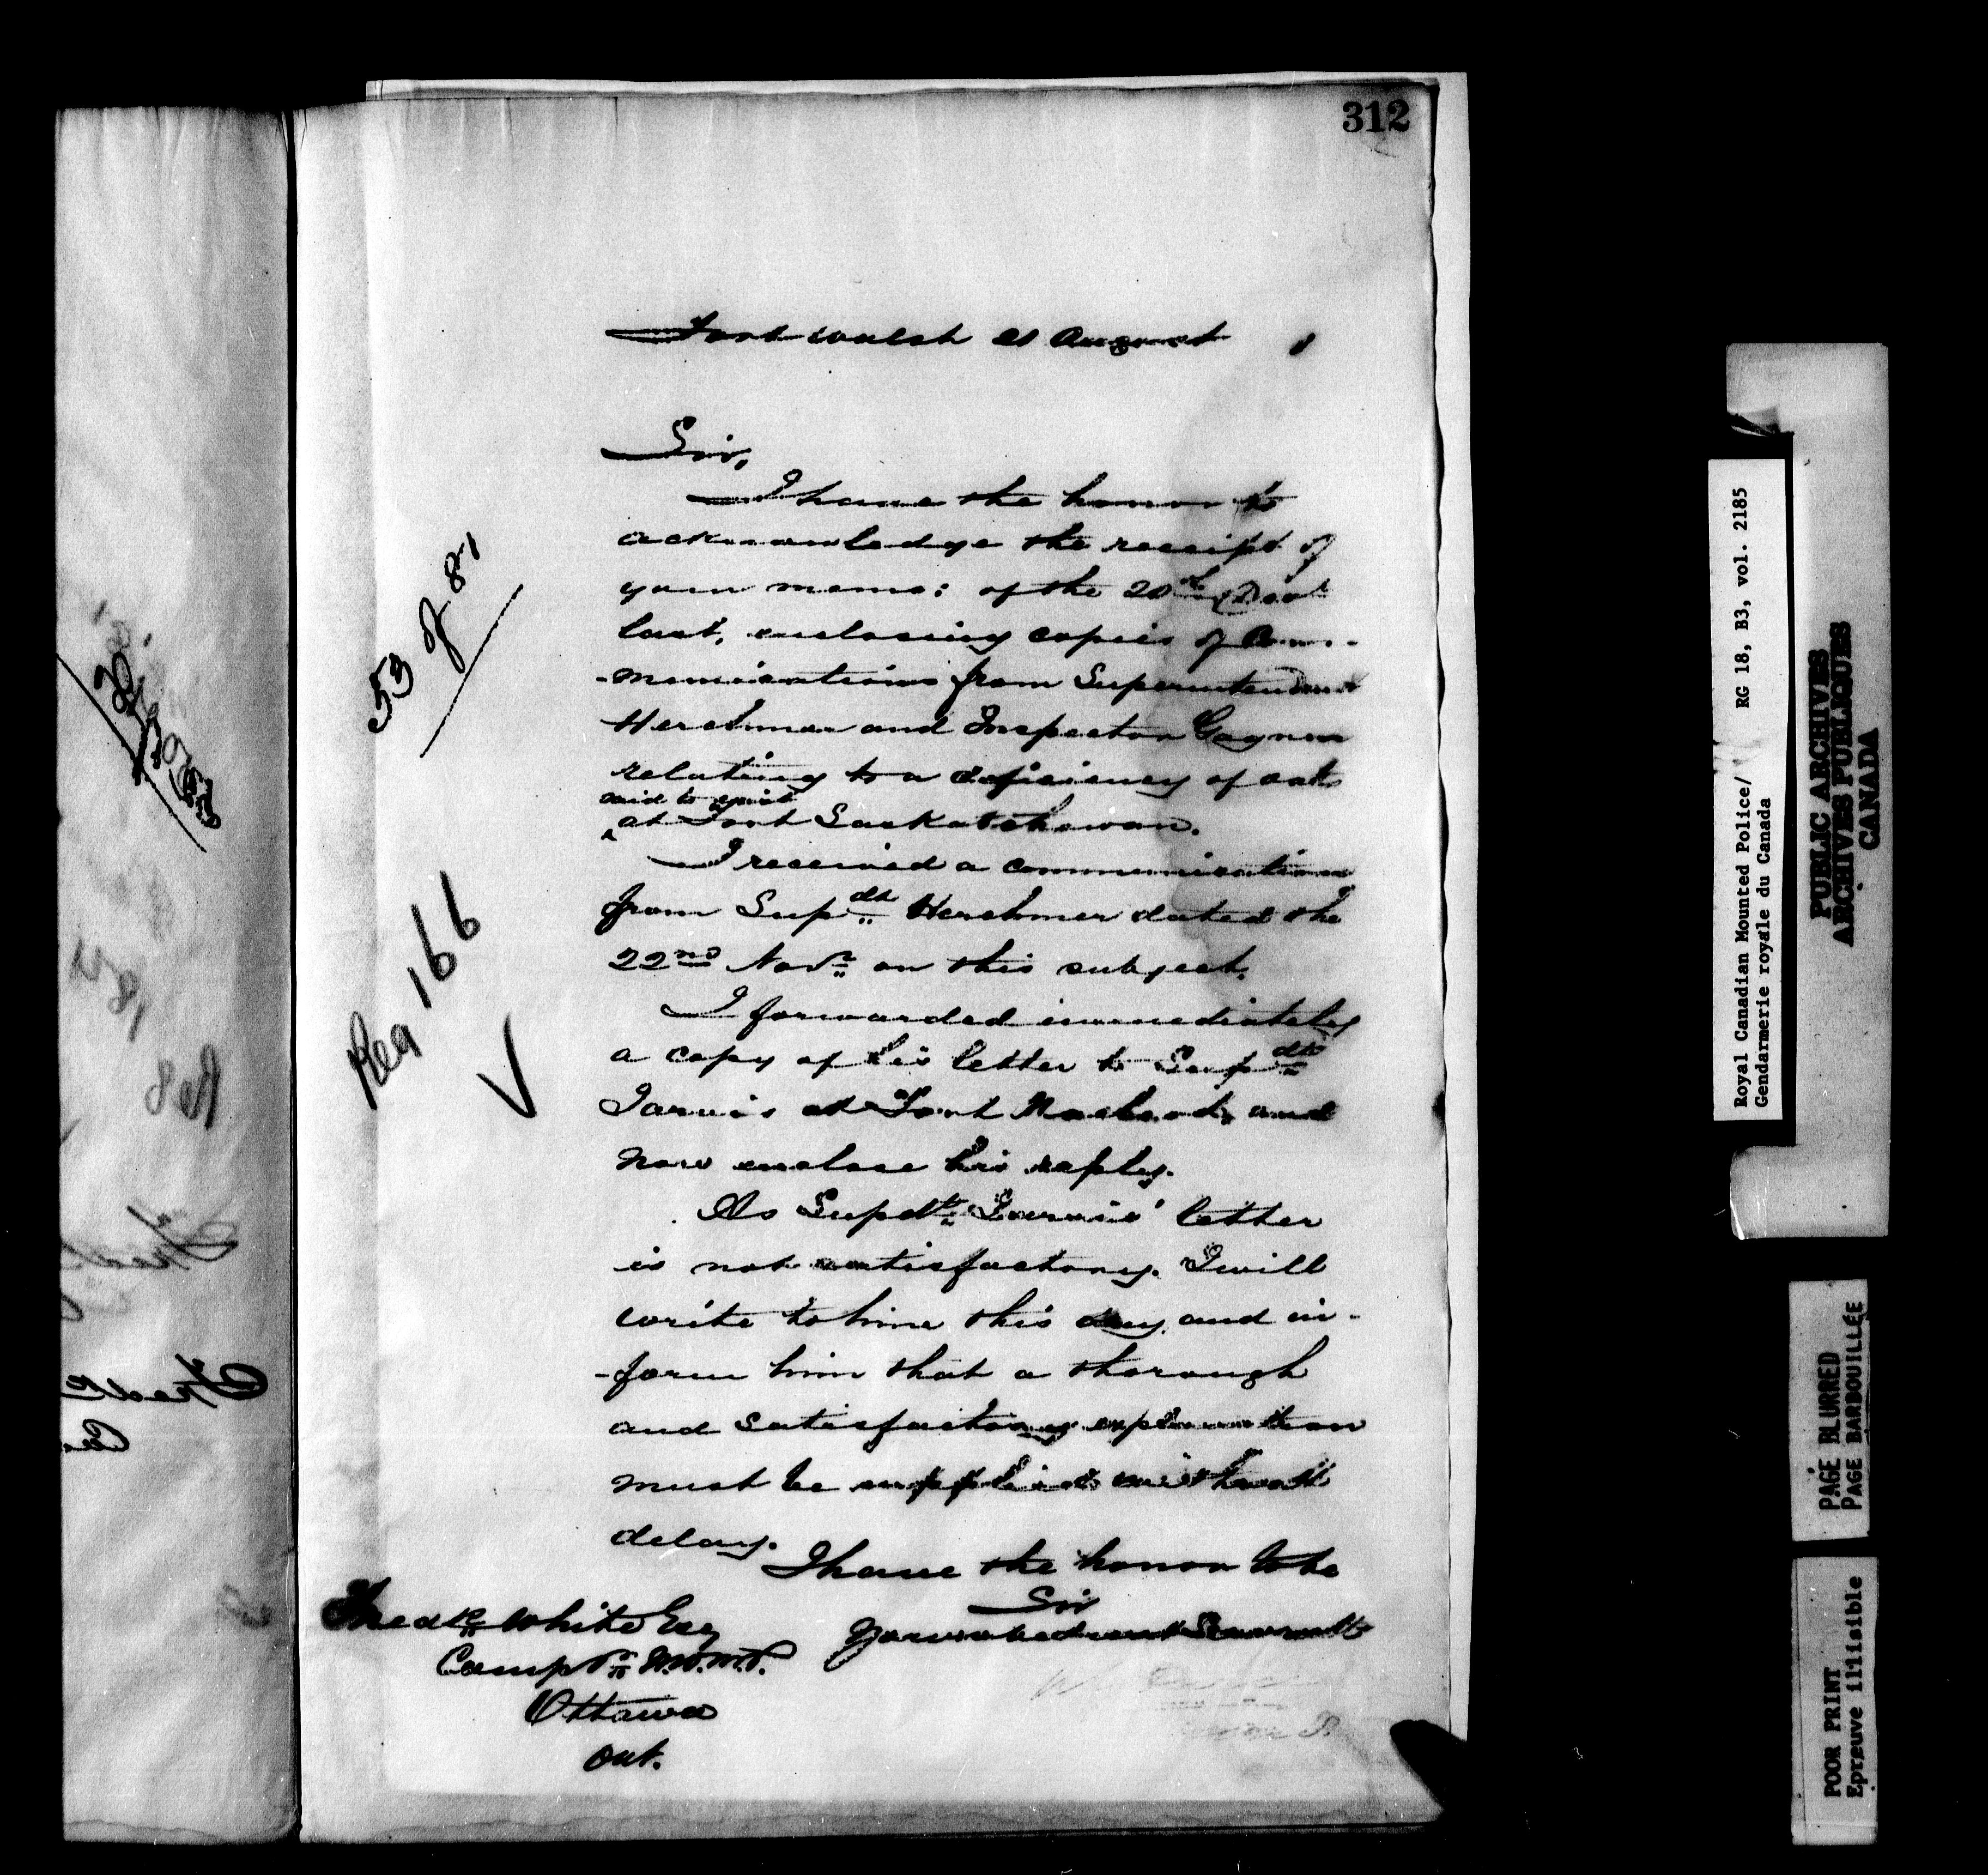 312
Fort Walsh 21 August
Sir,
I have the honor to
acknowledge the receipt of
your memo: of the 20th Decr
last, enclosing copies of Com-
-munications from Superintendent
Herchmer and Inspector Gagnon
relating to a deficiency of oats
said to exist
at Fort Saskatchewan.
I received a communication
from Supdt Herchmer dated the
22nd Novr on this subject.
I forwarded immediately
a copy of his letter to Supdt
Jarvis at Fort Macleod, and
now enclose his reply.
As Supdt Jarvis' letter
is not satisfactory. I will
write to him this day and in-
-form him that a thorough
and satisfactory explanation
must be supplied without
delay.
I have the honor to be
Sir
Your obedient Servant
Fredk White Esq
Comptr N.W.M.P.
Ottawa
Ont.
53 of 81
Reg 166
Royal Canadian Mounted Police/ RG 18, B3, vol. 2185
Gendarmerie royale du Canada
PUBLIC ARCHIVES
ARCHIVES PUBLIQUES
CANADA
PAGE BLURRED
PAGE BARBOUILLÉE
POOR PRINT
Epreuve illisible